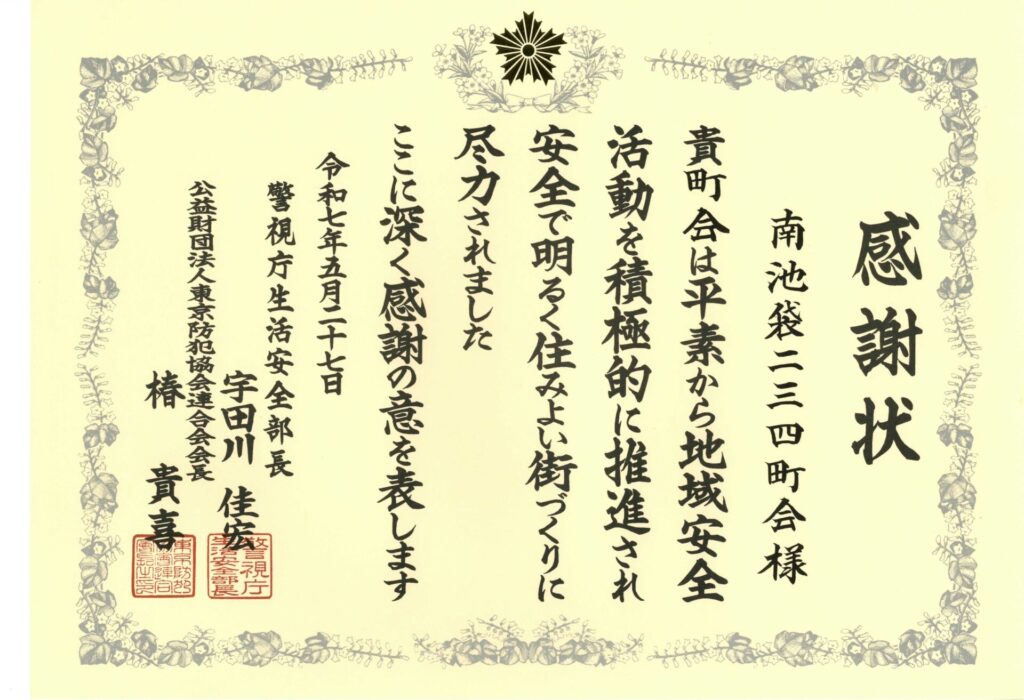 感謝状
南池袋二三四町会様
貴町会は平素から地域安全
活動を積極的に推進され
安全で明るく住みよい街づくりに
尽力されました
ここに深く感謝の意を表します
令和七年五月二十七日
警視庁生活安全部長
宇田川 佳宏
警視庁生活安全部長
公益財団法人東京防犯協会連合会会長
椿 貴喜